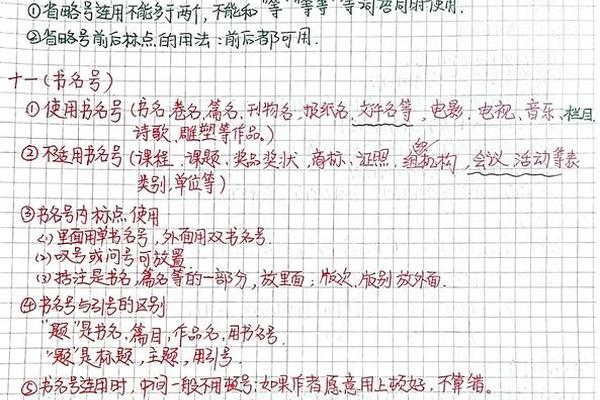 ①省略号连用不能多于两个,不能和"等""等等"等词语同时使用.
②省略号前后标点的用法:前后者都可用.
十一(书名号)
①使用书名号(书名、卷名、篇名、刊物名、报纸名、文件名等,电影、电视、音乐、栏目
诗歌、雕塑等作品。)
②不适用书名号(课程、课题、奖品奖状、商标、证照、组织机构,会议、活动等表
类别,单位等)
③书名号内标点使用
(1)里面用单书名号,外面用双书名号.
(2)叹号或问号可放置
(3)括注是书名,篇名等的一部分,放里面;版次,版别放外面.
④书名号与引号的区别
"题"是书名,篇目,作品名,用书名号.
"题"是标题,主题,用引号.
⑤书名号连用时,中间一般不用顿号;如果作者愿意用上顿好,不算错。